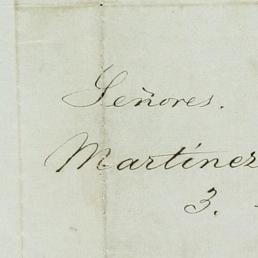 Señores.
Martínez
3.